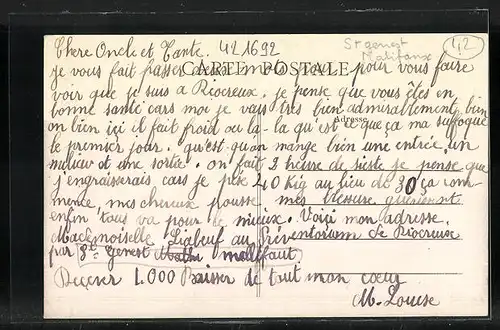 Chere Oncle et Tante. 421692
St genest
Malifaux
42
CARTE POSTALE
je vous fait passer pour vous faire
voir que je suis a Riocreux. je pense que vous êtes en
bonne santé cars moi je vais très bien admirablement bien
Adresse
on bien içi il fait froid ou la-la qu'est ce que ça ma suffoqué
le premier jour. qu'est-quan mange bien une entrée, un
milieu et une sortie. on fait 2 heure de sieste je pense que
j'engraisserais, cars je pèse 40 Kig au lieu de 30 ça com-
mence, mes cheveux pousse mes blessure guerissent
enfin tous va pour le mieux. Voiçi mon adresse.
Mademoiselle Liabeuf au Préventorium de Riocreux
par St Genest Mathu mallifaut
Recever 1.000 Baisser de tout mon coeur
M. Louise